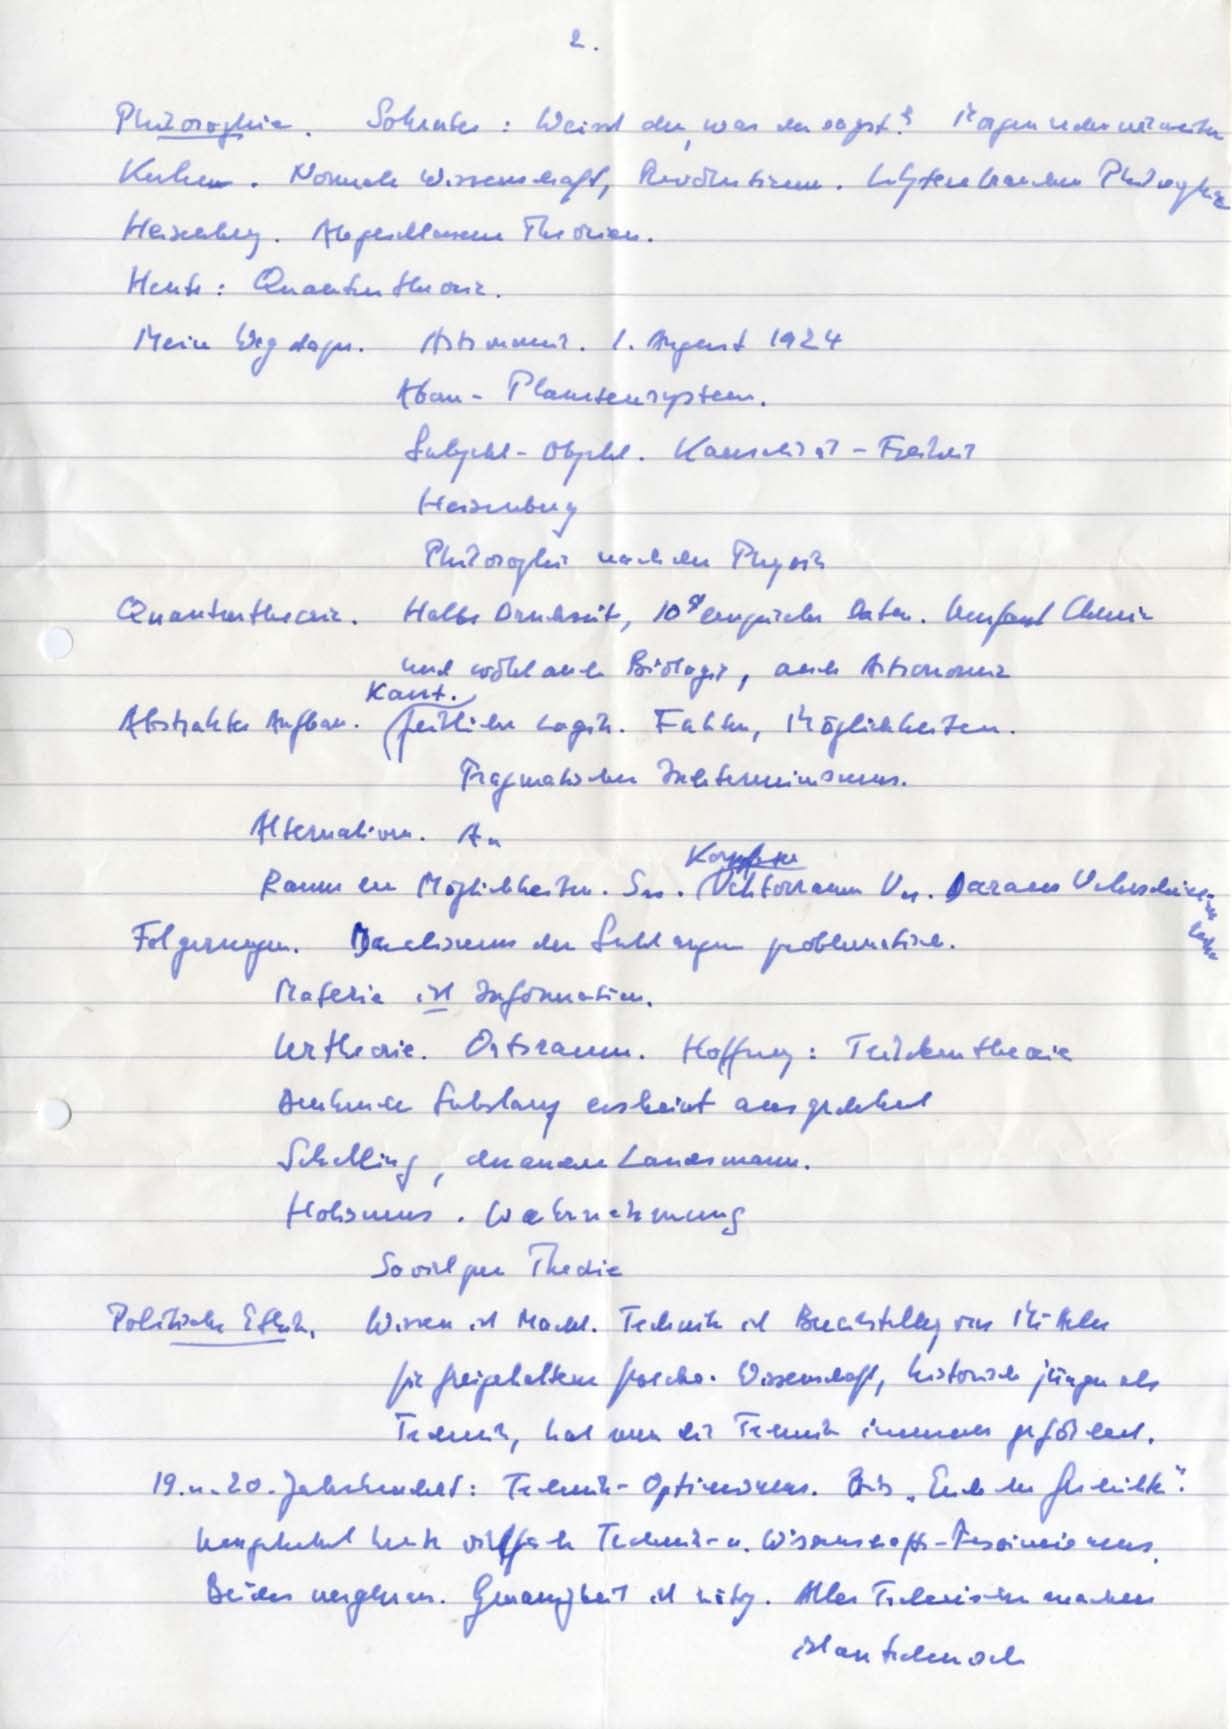 2.
Philosophie. Sokrates: Weisst du, was du sagst? Morgen
Kuhn. Normale Wissenschaft, Revolutionen. Philosophie
Heisenberg. Abgeschlossene Theorien.
Heute: Quantentheorie.
Mein Weg dazu. Astronomie. 1. August 1924
Atom - Planetensystem.
Subjekt - Objekt. Kausalität - Freiheit
Heisenberg
Philosophie nach der Physik
Quantentheorie. Halbe Druckseite, 10⁹ empirische Daten. Umfasst Chemie
und wohl auch Biologie, auch Astronomie
Kant.
Abstrakter Aufbau. (Zeitliche Logik. Fakten, Möglichkeiten.
Pragmatischer Indeterminismus.
Alternativen. An
Komplexer
Raum der Möglichkeiten. Sn. (Vektorraum Vn. Daraus
Folgerungen. Dualismus der Substanzen problematisch.
Materie ist Information.
Urtheorie. Ortsraum. Hoffnung: Teilchentheorie
Denkende Substanz erscheint ausgedehnt
Schelling, der andere Landsmann.
Holismus. Wahrnehmung
Soviel zur Theorie
Politische Ethik. Wissen ist Macht. Technik ist Bereitstellung von Mitteln
für freigehaltene Zwecke. Wissenschaft, historisch jünger als
Technik, hat nun die Technik immens gefördert.
19. u. 20. Jahrhundert: Technik-Optimismus. Bis "Ende der Geschichte".
Umgekehrt heute vielfach Technik- u. Wissenschafts-Pessimismus.
Beides ungenau. Genauigkeit ist nötig. Alles Technische machen
ist untechnisch